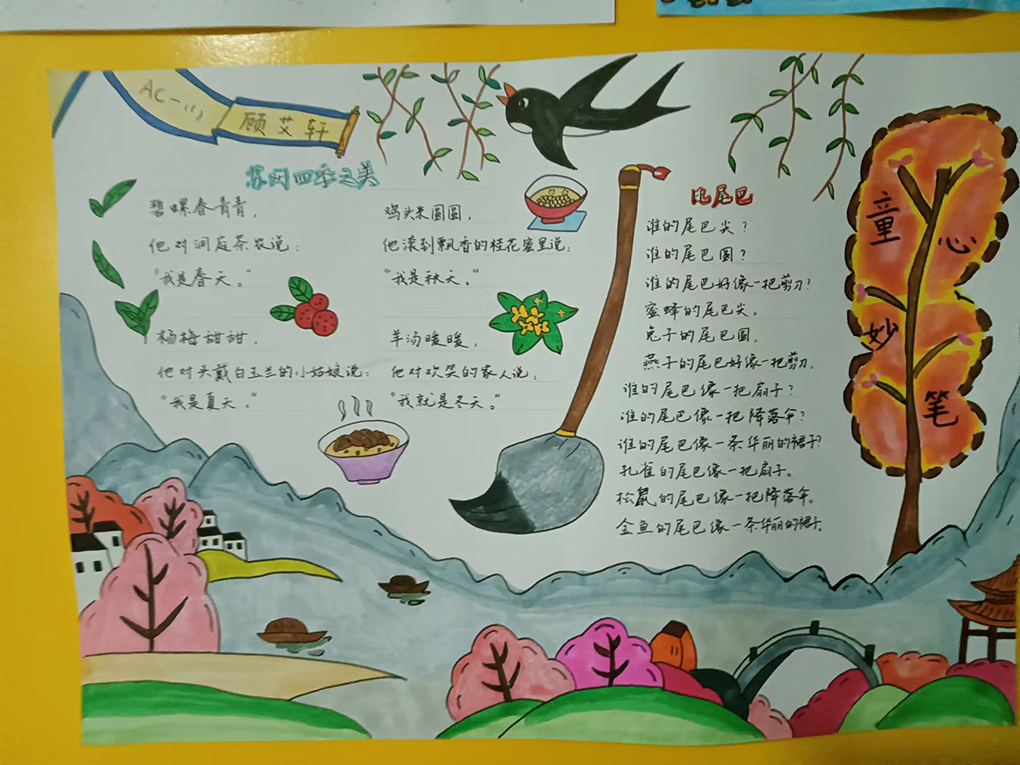 AC-
顾艾轩
苏州四季之美
碧螺春青青，
他对洞庭茶农说：
“我是春天。”
杨梅甜甜，
他对头戴白玉兰的小姑娘说：
“我是夏天。”
鸡头米圆圆，
他滚到飘香的桂花蜜里说：
“我是秋天。”
羊汤暖暖，
他对欢笑的家人说：
“我就是冬天。”
比尾巴
谁的尾巴尖？
谁的尾巴圆？
谁的尾巴好像一把剪刀？
蜜蜂的尾巴尖。
兔子的尾巴圆。
燕子的尾巴好像一把剪刀。
谁的尾巴像一把扇子？
谁的尾巴像一把降落伞？
谁的尾巴像一条华丽的裙子？
孔雀的尾巴像一把扇子。
松鼠的尾巴像一把降落伞。
金鱼的尾巴像一条华丽的裙子。
童心妙笔